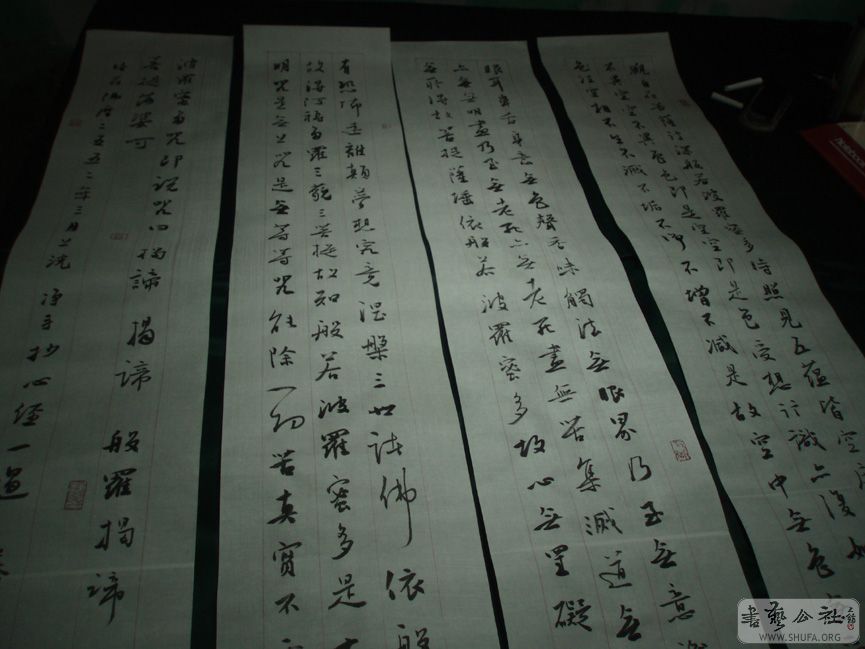 觀自在菩薩行深般若波羅蜜多時照見五蘊皆空度
不異空空不異色色即是空空即是色受想行識亦復如
法空相不生不滅不垢不淨不增不減是故空中無色
眼耳鼻舌身意無色聲香味觸法無眼界乃至無意識
亦無無明盡乃至無老死亦無老死盡無苦集滅道無
無所得故菩提薩埵依般若波羅蜜多故心無罣礙
有恐怖遠離顛夢想究竟涅槃三世諸佛依般
故得阿耨多羅三藐三菩提故知般若波羅蜜多是
明咒是無上咒是無等等咒能除一切苦真實不
波羅蜜多咒即説咒曰揭諦揭諦般羅揭諦
菩提薩婆訶
佛曆二五五二年三月上浣淨手抄心經一過
書藝公社
WWW.SHUFA.ORG